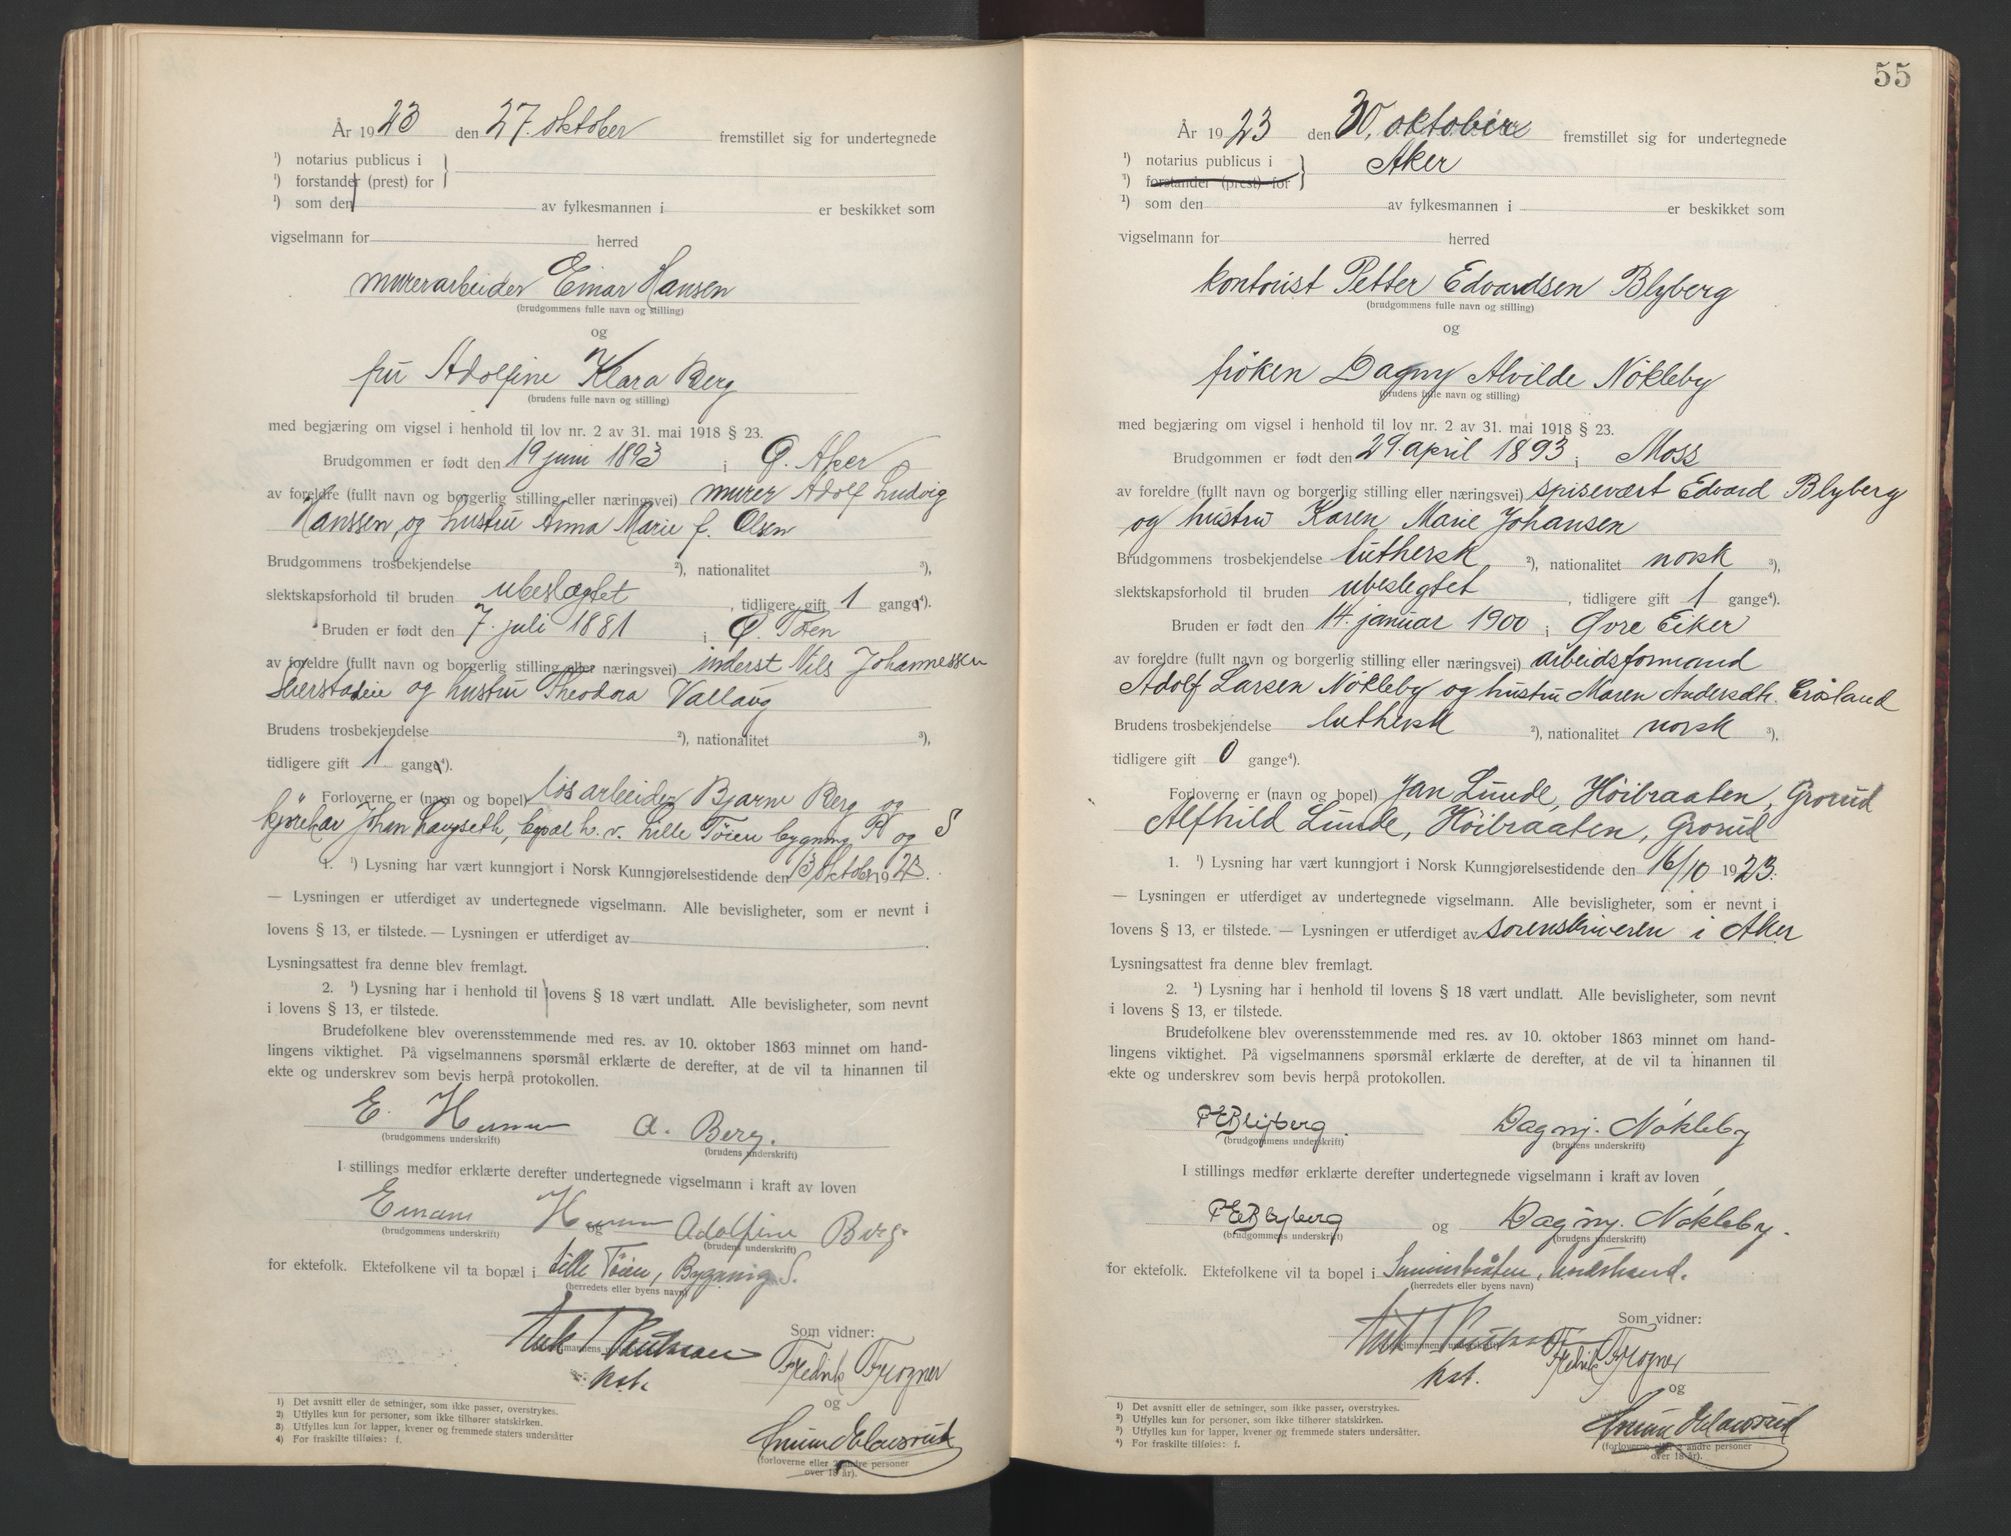 År 1923 den 27. oktober fremstillet sig for undertegnede
¹) notarius publicus i
¹) forstander (prest) for
¹) som den av fylkesmannen i er beskikket som
vigselmann for herred
murerarbeider Einar Hansen
(brudgommens fulle navn og stilling)
og
fru Adolfine Klara Berg
(brudens fulle navn og stilling)
med begjæring om vigsel i henhold til lov nr. 2 av 31. mai 1918 § 23.
Brudgommen er født den 19 juni 1893 i Ø. Aker
av foreldre (fullt navn og borgerlig stilling eller næringsvei) murer Adolf Ludvig
Hanssen, og hustru Anna Marie f. Olsen
Brudgommens trosbekjendelse ²), nationalitet ³),
slektskapsforhold til bruden ubeslægtet, tidligere gift 1 gange⁴).
Bruden er født den 7. juli 1881 i Ø. Toten
av foreldre (fullt navn og borgerlig stilling eller næringsvei) inderst Nils Johannessen
og hustru Theodora
Brudens trosbekjendelse ²), nationalitet ³),
tidligere gift 1 gange⁴).
Forloverne er (navn og bopel) løsarbeider Bjarne Berg og
kjørekar Johan bopæl h. v. Lille Tøien bygning R og S
1. ¹) Lysning har vært kunngjort i Norsk Kunngjørelsestidende den 13 oktober 1923.
— Lysningen er utferdiget av undertegnede vigselmann. Alle bevisligheter, som er nevnt i
lovens § 13, er tilstede. — Lysningen er utferdiget av
Lysningsattest fra denne blev fremlagt.
2. ¹) Lysning har i henhold til lovens § 18 vært undlatt. Alle bevisligheter, som nevnt
i lovens § 13, er tilstede.
Brudefolkene blev overensstemmende med res. av 10. oktober 1863 minnet om hand-
lingens viktighet. På vigselmannens spørsmål erklærte de derefter, at de vil ta hinannen til
ekte og underskrev som bevis herpå protokollen.
E. Hansen A. Berg.
(brudgommens underskrift) (brudens underskrift)
I stillings medfør erklærte derefter undertegnede vigselmann i kraft av loven
Hansen og Adolfine Berg.
(brudgommens underskrift) (brudens underskrift)
for ektefolk. Ektefolkene vil ta bopæl i Lille Tøien, Bygning S.
(herredets eller byens navn)
Som vidner:
Fredrik Frogner
kst.
og
(forloverne eller 2 andre personer
over 18 år).
1) Det avsnitt eller de setninger, som ikke passer, overstrykes.
2) Utfylles kun for personer, som ikke tilhører statskirken.
3) Utfylles kun for lapper, kvener og fremmede staters undersåtter
4) For fraskilte tilføies: f.
55
År 1923 den 30. oktober fremstillet sig for undertegnede
¹) notarius publicus i Aker
¹) forstander (prest) for
¹) som den av fylkesmannen i er beskikket som
vigselmann for herred
kontorist Petter Edvardsen Blyberg
(brudgommens fulle navn og stilling)
og
frøken Dagny Alvilde Nøkleby
(brudens fulle navn og stilling)
med begjæring om vigsel i henhold til lov nr. 2 av 31. mai 1918 § 23.
Brudgommen er født den 29. april 1893 i Moss
av foreldre (fullt navn og borgerlig stilling eller næringsvei) spisevært Edvard Blyberg
og hustru Karen Marie Johansen
Brudgommens trosbekjendelse luthersk ²), nationalitet norsk ³),
slektskapsforhold til bruden ubeslegtet, tidligere gift 1 gange⁴).
Bruden er født den 14. januar 1900 i Øvre Eiker
av foreldre (fullt navn og borgerlig stilling eller næringsvei) arbeidsformand
Adolf Larsen Nøkleby og hustru Maren Andersdtr.
Brudens trosbekjendelse luthersk ²), nationalitet norsk ³),
tidligere gift 0 gange⁴).
Forloverne er (navn og bopel) Jan Lunde, Høibraaten, Grorud
Alfhild Lunde, Høibraaten, Grorud
1. ¹) Lysning har vært kunngjort i Norsk Kunngjørelsestidende den 16/10 1923.
— Lysningen er utferdiget av undertegnede vigselmann. Alle bevisligheter, som er nevnt i
lovens § 13, er tilstede. — Lysningen er utferdiget av sorenskriveren i Aker
Lysningsattest fra denne blev fremlagt.
2. ¹) Lysning har i henhold til lovens § 18 vært undlatt. Alle bevisligheter, som nevnt
i lovens § 13, er tilstede.
Brudefolkene blev overensstemmende med res. av 10. oktober 1863 minnet om hand-
lingens viktighet. På vigselmannens spørsmål erklærte de derefter, at de vil ta hinannen til
ekte og underskrev som bevis herpå protokollen.
P E Blyberg. Dagny. Nøkleby
(brudgommens underskrift) (brudens underskrift)
I stillings medfør erklærte derefter undertegnede vigselmann i kraft av loven
P E Blyberg og Dagny. Nøkleby.
(brudgommens underskrift) (brudens underskrift)
for ektefolk. Ektefolkene vil ta bopel i
(herredets eller byens navn)
Som vidner:
Fredrik Frogner
kst.
og
(forloverne eller 2 andre personer
over 18 år).
¹) Det avsnitt eller de setninger, som ikke passer, overstrykes.
²) Utfylles kun for personer, som ikke tilhører statskirken.
³) Utfylles kun for lapper, kvener og fremmede staters undersåtter.
⁴) For fraskilte tilføies: f.